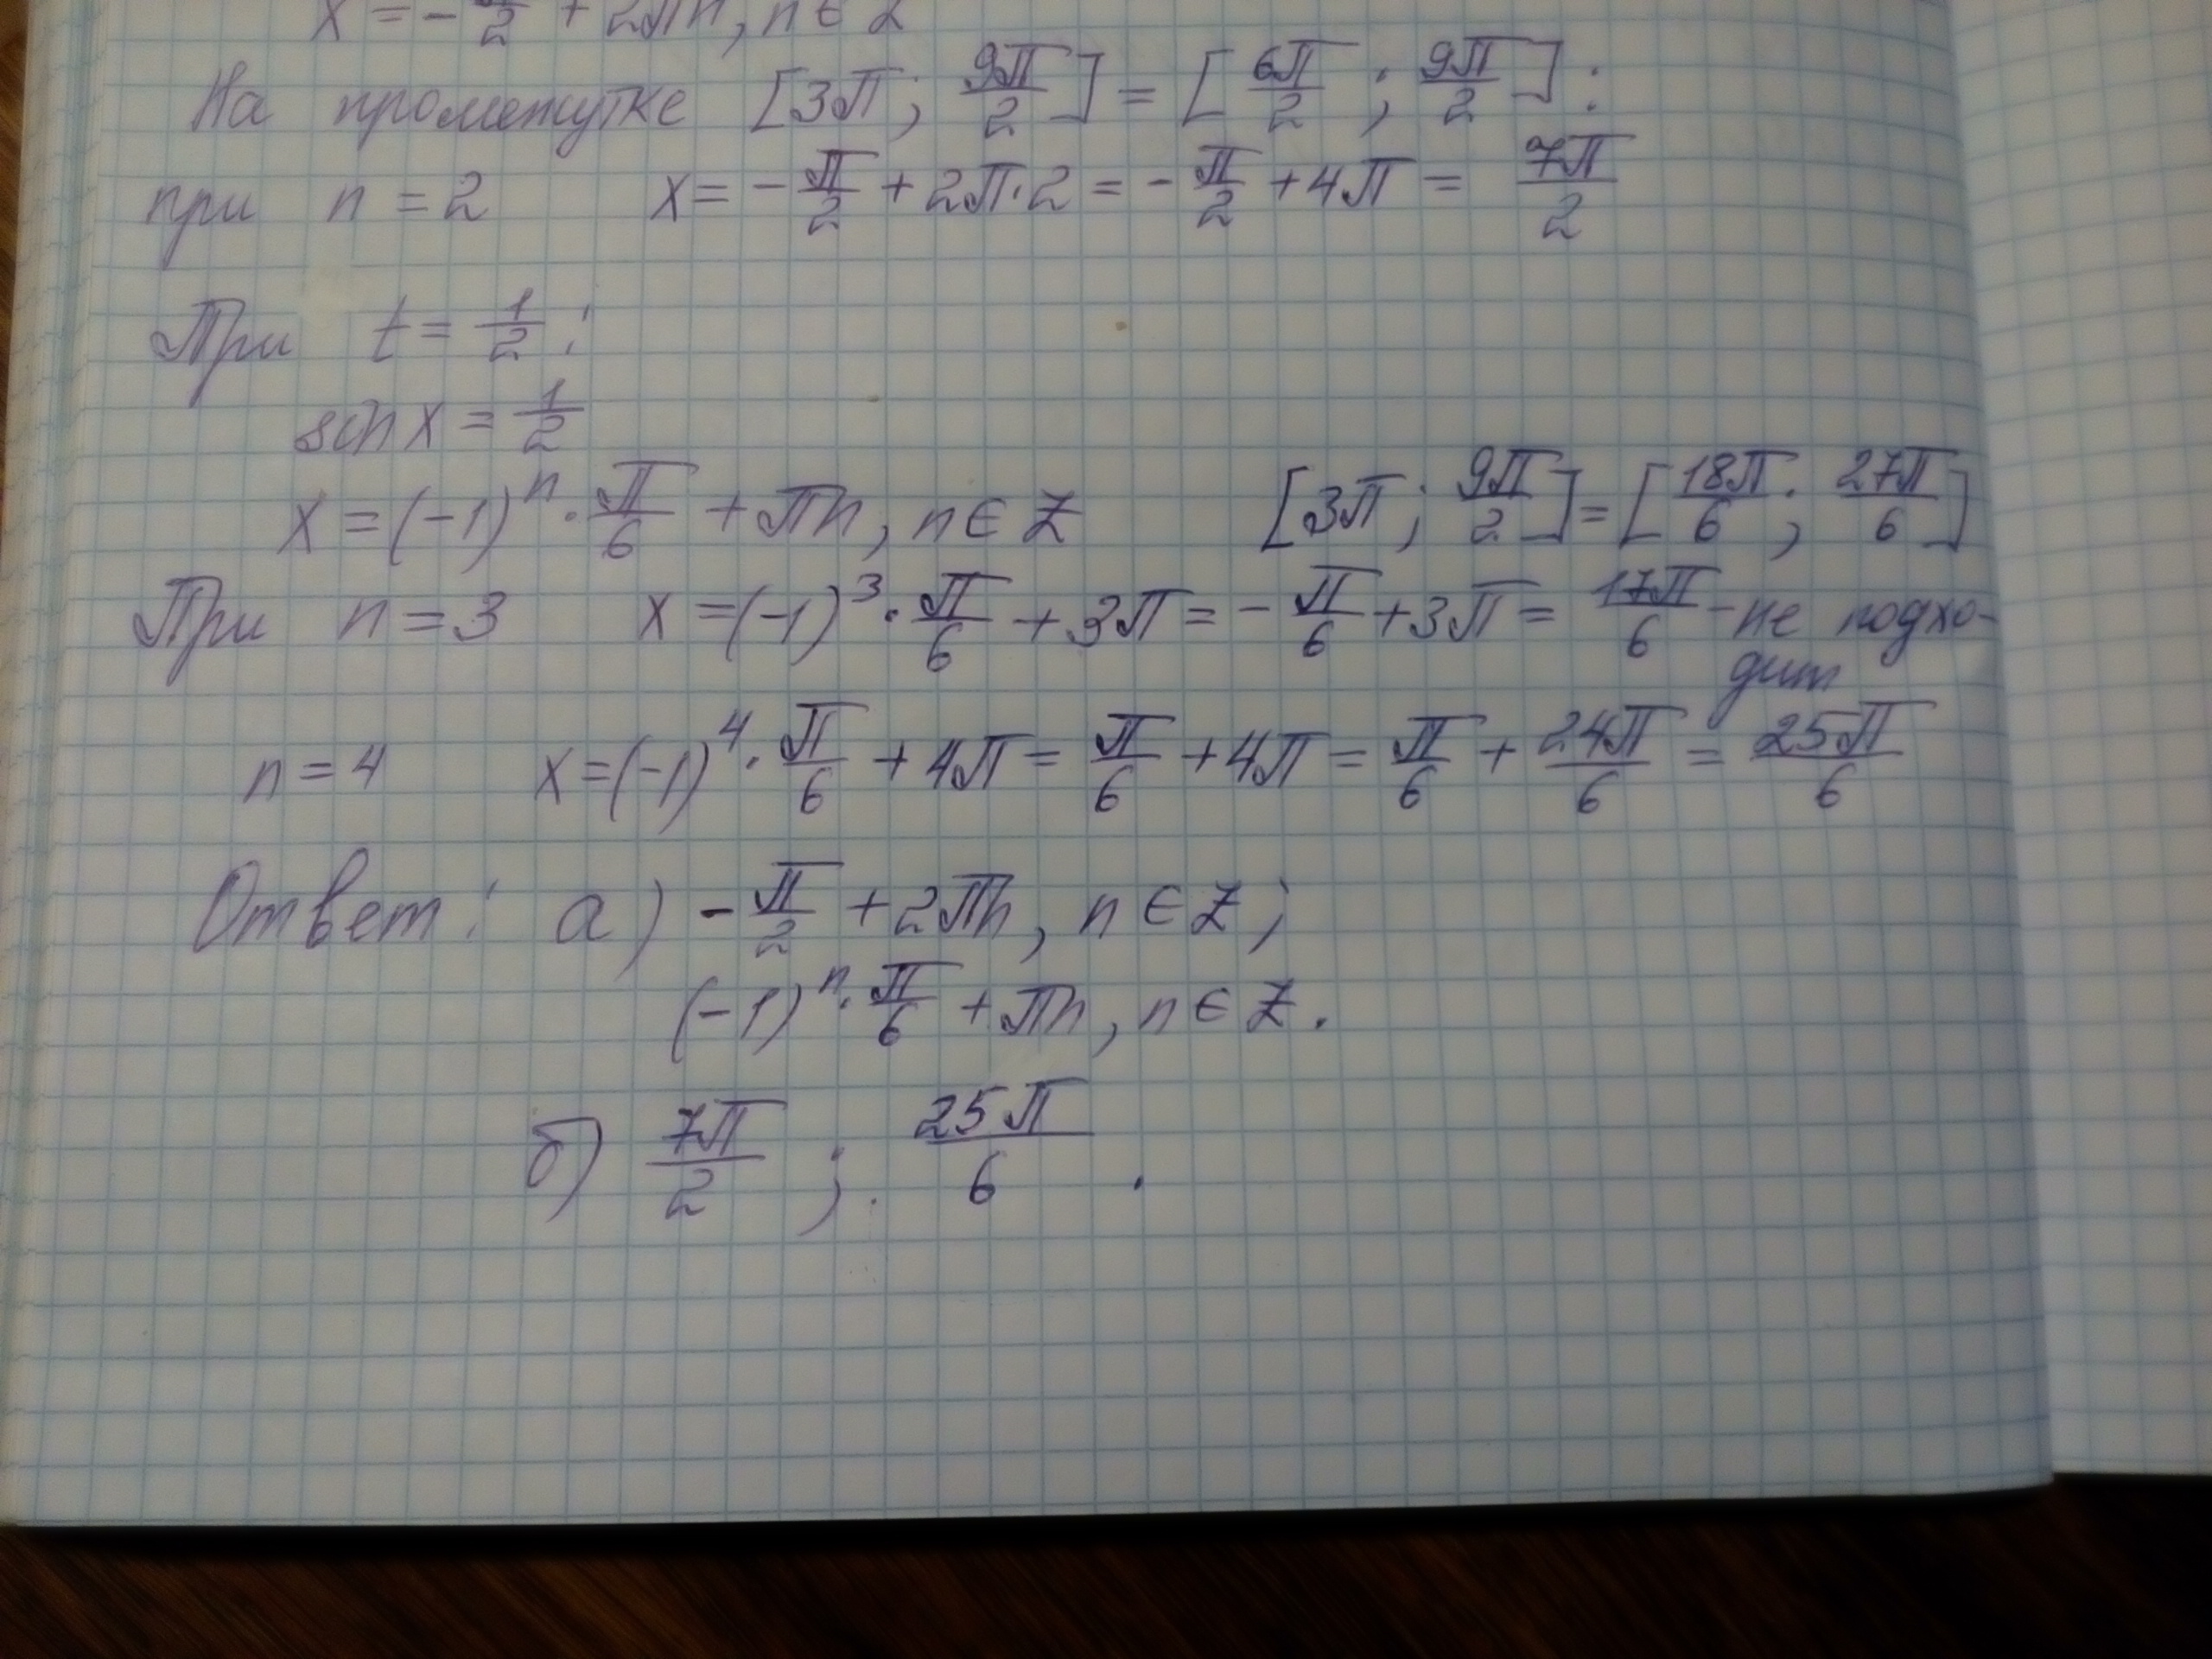 x = -π/2 + 2πn, n ∈ Z
На промежутке [3π; 9π/2] = [6π/2; 9π/2]:
при n = 2 x = -π/2 + 2π·2 = -π/2 + 4π = 7π/2
При t = 1/2:
sin x = 1/2
x = (-1)^n · π/6 + πn, n ∈ Z [3π; 9π/2] = [18π/6; 27π/6]
При n = 3 x = (-1)^3 · π/6 + 3π = -π/6 + 3π = 17π/6 - не подхо-
дит
n = 4 x = (-1)^4 · π/6 + 4π = π/6 + 4π = π/6 + 24π/6 = 25π/6
Ответ: а) -π/2 + 2πn, n ∈ Z;
(-1)^n · π/6 + πn, n ∈ Z.
б) 7π/2 ; 25π/6 .